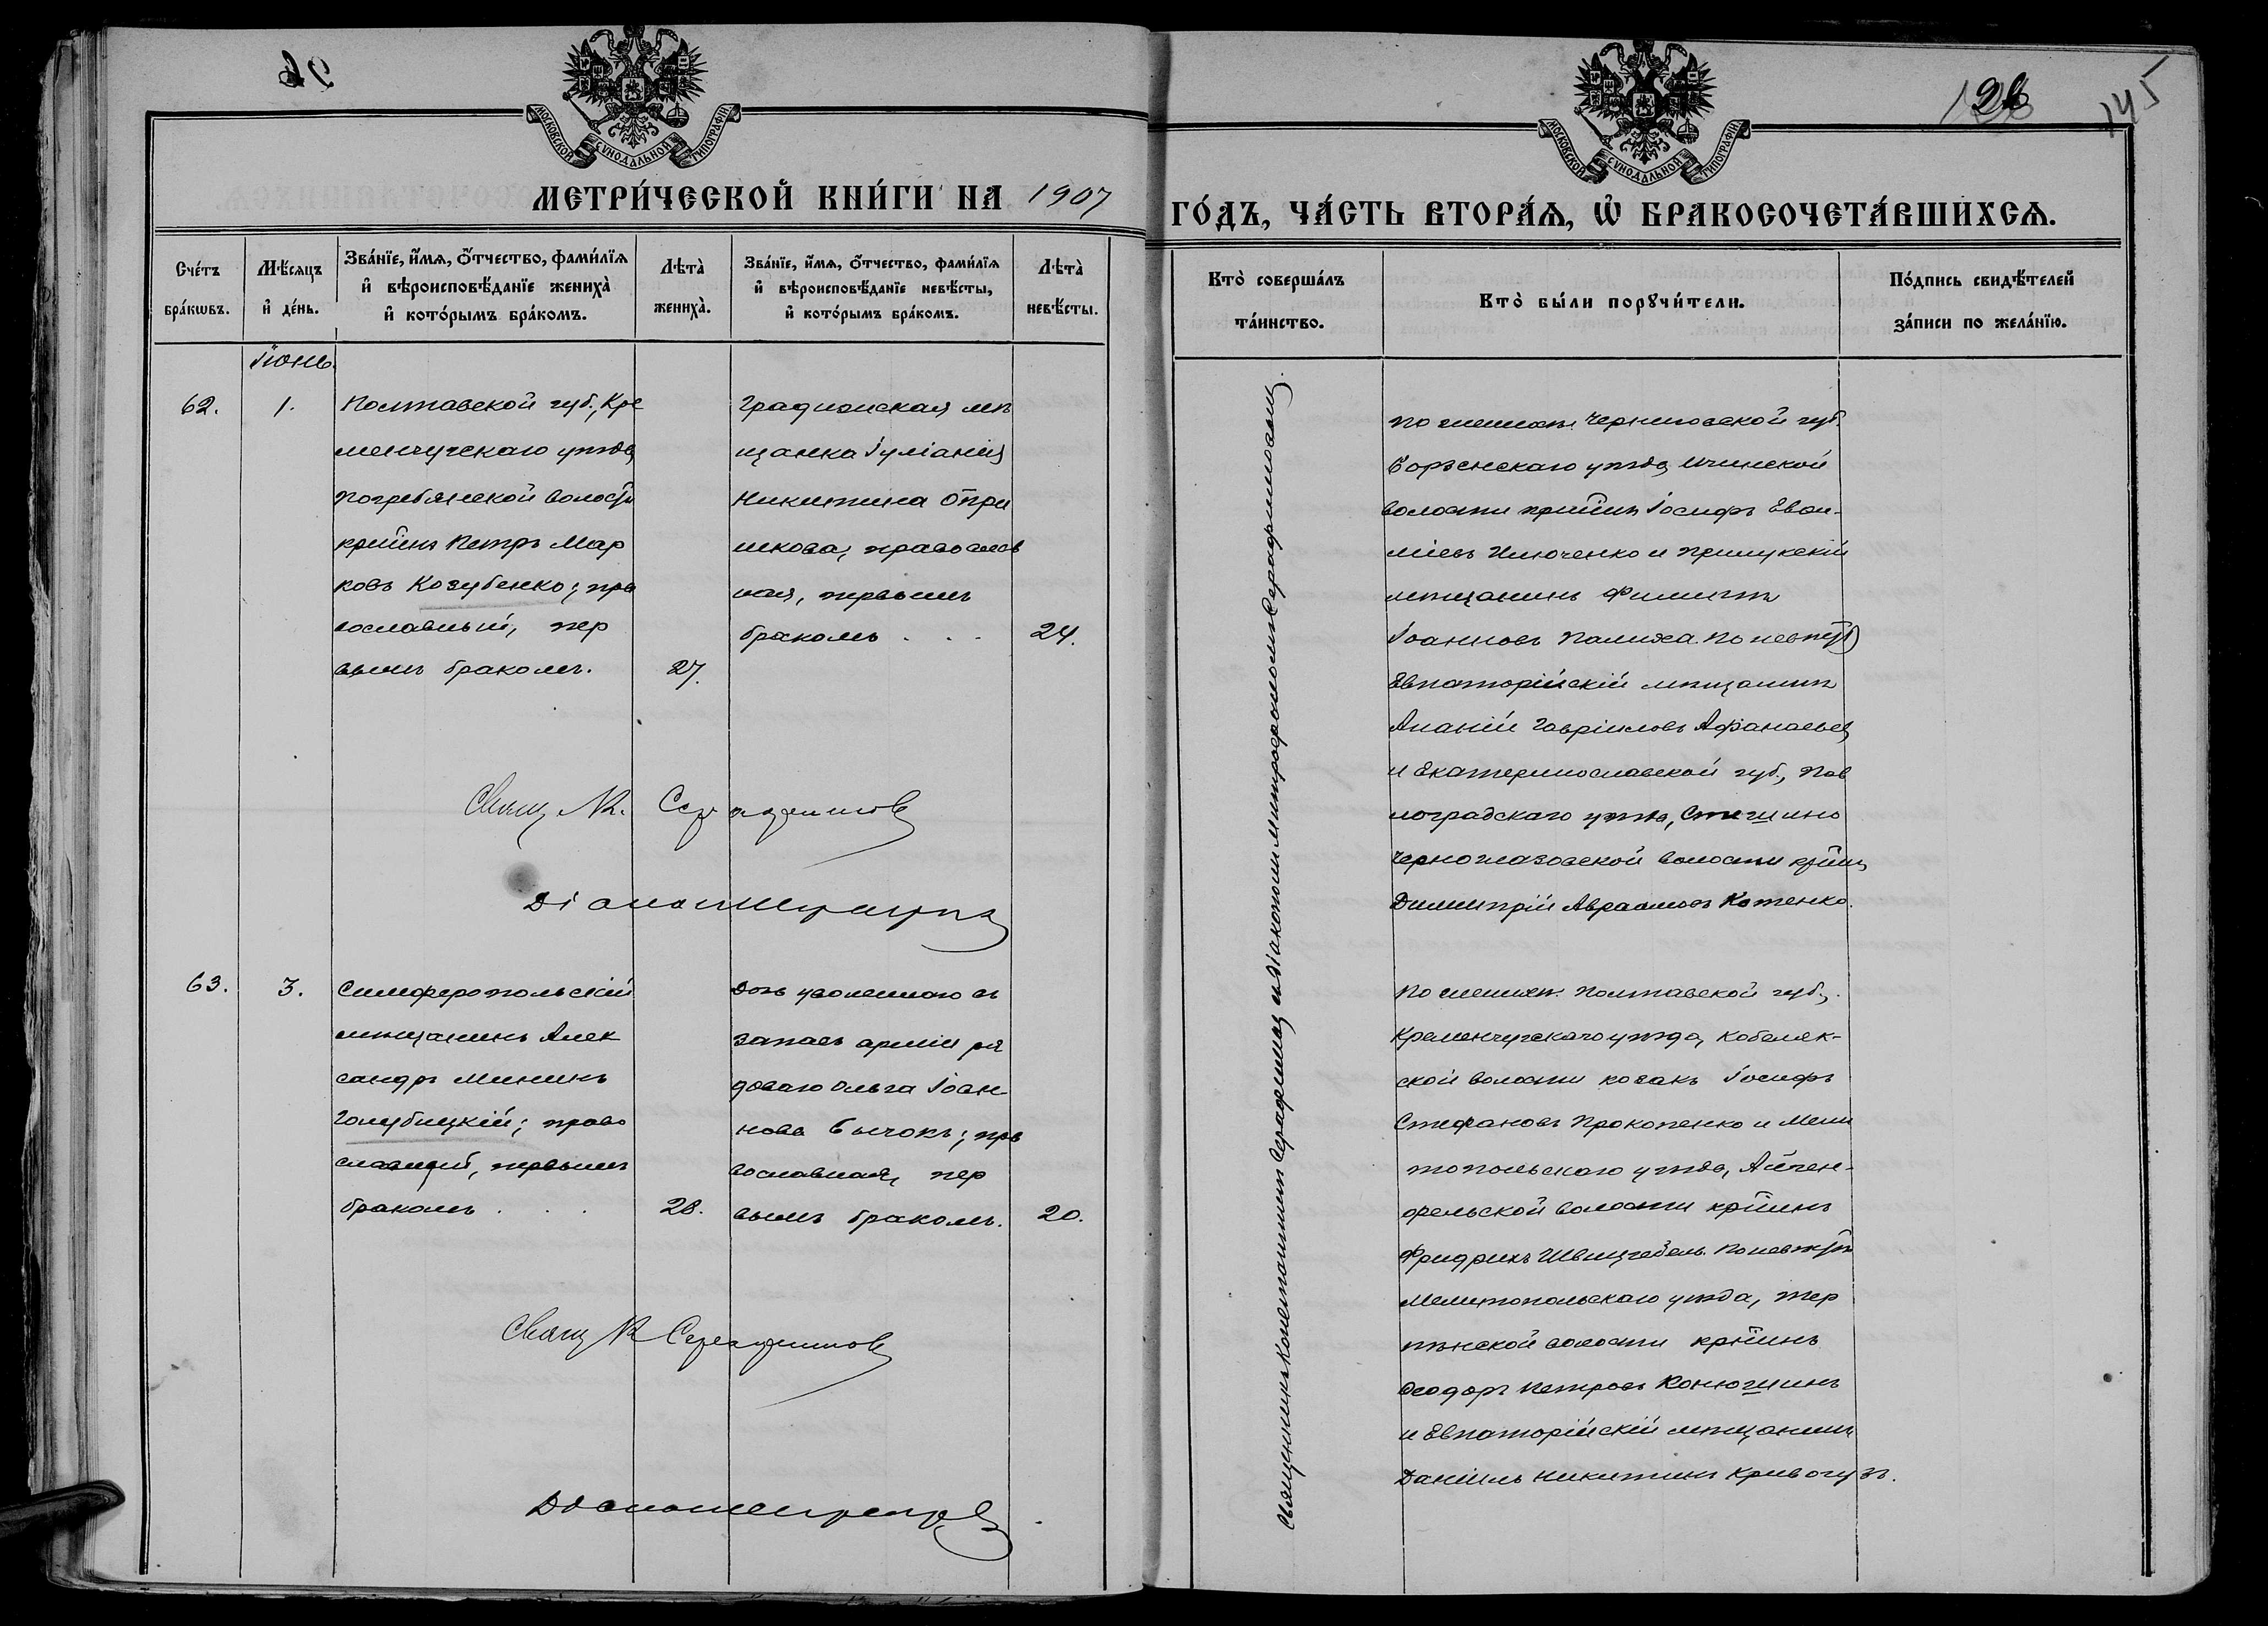 26
145
МОСКОВСКОЙ СѴНОДАЛЬНОЙ ТИПОГРАФІИ
МОСКОВСКОЙ СѴНОДАЛЬНОЙ ТИПОГРАФІИ
МЕТРИ́ЧЕСКОЙ КНИ́ГИ НА 1907
ГО́ДЪ, ЧА́СТЬ ВТОРА́Ѧ, Ѡ҆ БРАКОСОЧЕТА́ВШИХСѦ.
Сче́тъ бра́кѡвъ.
Мѣ́сѧцъ и҆ де́нь.
Зва́нїе, и҆́мѧ, ѻ҆́тчество, фами́лїѧ
и҆ вѣроисповѣ́данїе жениха̀
и҆ кото́рымъ бра́комъ.
Лѣта̀ жениха̀.
Зва́нїе, и҆́мѧ, ѻ҆́тчество, фами́лїѧ
и҆ вѣроисповѣ́данїе невѣ́сты,
и҆ кото́рымъ бра́комъ.
Лѣта̀ невѣ́сты.
Кто̀ соверша́лъ та́инство.
Кто̀ бы́ли порꙋчи́тели.
По́дпись свидѣ́телей за́писи по жела́нїю.
Іюнь.
62.
1.
Полтавской губ., Кре
менчугскаго уѣзда,
Погребянской волости
кр̃инъ Петръ Мар
ковъ Козубенко; пра
вославный, пер
вымъ бракомъ.
27.
Градижская мѣ
щанка Іуліанія
Никитина Опри
шкова; православ
ная, первымъ
бракомъ . . .
24.
По женихѣ: Черниговской губ.
Борзенскаго уѣзда, Ичнской
волости кр̃инъ Іосифъ Евѳи-
міевъ Илюченко и Прилукскій
мѣщанинъ Филиппъ
Іоанновъ Палиха. По невѣстѣ
Евпаторійскій мѣщанинъ
Ананій Гавріиловъ Афанасьев
и Екатеринославской губ., Пав
лоградскаго уѣзда,
волости кр̃инъ
Димитрій Авраамовъ Котенко.
Свящ. К. Серафимовъ
Діаконъ
63.
3.
Симферопольскій
мѣщанинъ Алек
сандръ Мининъ
Голубицкій; право
славный, первымъ
бракомъ . . .
28.
Дочь уволеннаго въ
запасъ арміи ря
доваго Ольга Іоан-
нова Бычокъ; пра
вославная, пер
вымъ бракомъ.
20.
По женихѣ: Полтавской губ.,
Кременчугскаго уѣзда, Кобеляк-
ской волости козакъ Іосифъ
Стефановъ Прокопенко и Мели
топольскаго уѣзда,
волости кр̃инъ
Фридрихъ Швицгебель. По невѣстѣ
Мелитопольскаго уѣзда, Тер
пѣнской волости кр̃инъ
Ѳеодоръ Петровъ Конюшинъ
и Евпаторійскій мѣщанинъ
Даніилъ Никитинъ Кривогузъ.
Свящ. К. Серафимовъ
Діаконъ
Священникъ Константинъ Серафимовъ и діакономъ Митрофаномъ Серафимовымъ.